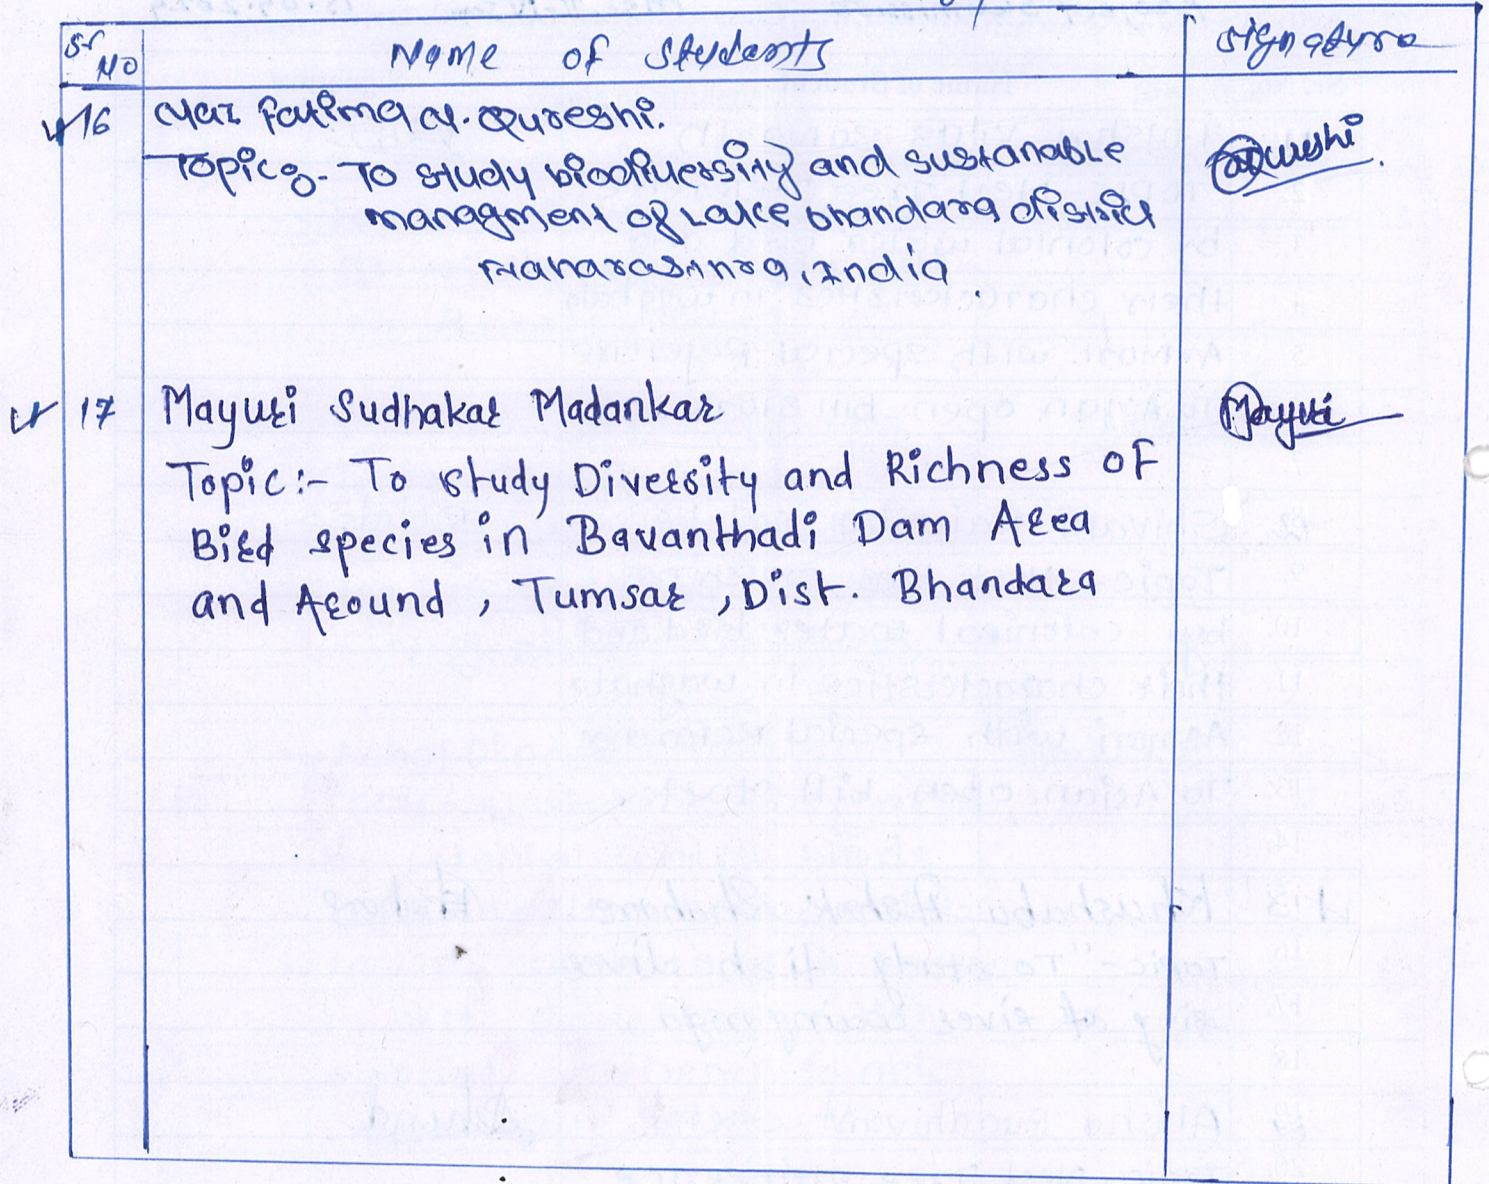 Sr NO Name of Students Signature
16 Fatima A. Qureshi. Qureshi
Topic:- To study biodiversity and sustanable
managment of Lake bhandara district
Maharashtra, India.
17 Mayuri Sudhakar Madankar Mayuri
Topic:- To study Diversity and Richness of
Bird species in Bavanthadi Dam Area
and Around, Tumsar, Dist. Bhandara